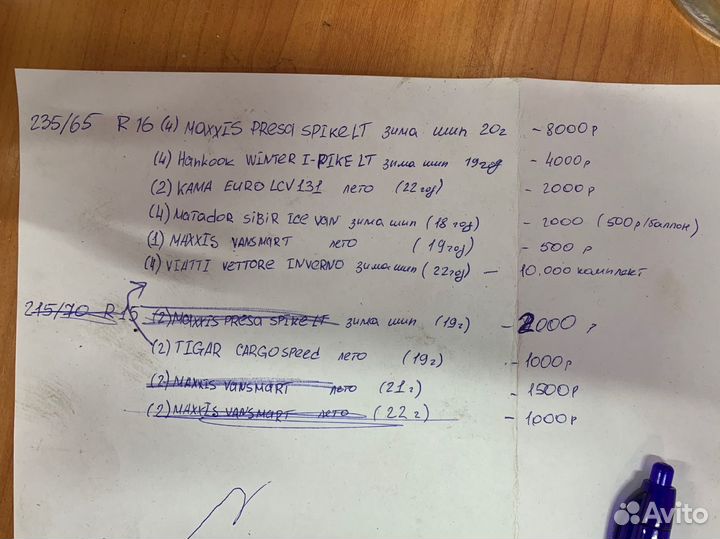 235/65 R16 (4) MAXXIS PRESA SPIKE LT зима шип 20г - 8000р
(4) Hankook WINTER I-PIKE LT зима шип 19год - 4000р
(2) KAMA EURO LCV 131 лето (22год) - 2000р
(4) MATADOR SIBIR ICE VAN зима шип (18 год) - 2000 (500р/баллон)
(1) MAXXIS VANSMART лето (19год) - 500р
(4) VIATTI VETTORE INVERNO зима шип (22год) - 10.000 комплект
215/70 R15 (2) MAXXIS PRESA SPIKE LT зима шип (19г) - 2000 р
(2) TIGAR CARGO SPEED лето (19г) - 1000р
(2) MAXXIS VANSMART лето (21г) - 1500р
(2) MAXXIS VANSMART лето (22г) - 1000р
Avito